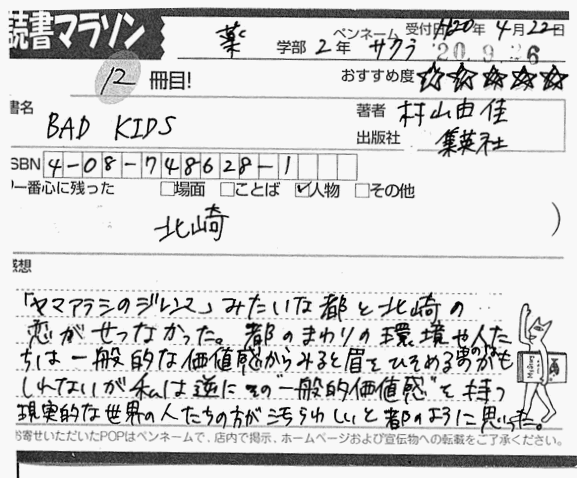 読書マラソン
薬 学部 2年 ペンネーム サクラ 受付日 H20年4月22日
20 9. 26
12 冊目! おすすめ度 ☆☆☆☆☆
書名 BAD KIDS
著者 村山由佳
出版社 集英社
ISBN 4-08-748628-1
一番心に残った □場面 □ことば ☑人物 □その他
北崎 )
感想
「ヤマアラシのジレンマ」みたいな都と北崎の
恋がせつなかった。都のまわりの環境や人た
ちは一般的な価値感からみると眉をひそめるものなのかも
しれないが私は逆にその一般的価値感"を持つ
現実的な世界の人たちの方が汚らわしいと都のように思った。
お寄せいただいたPOPはペンネームで、店内で掲示、ホームページおよび宣伝物への転載をご了承ください。